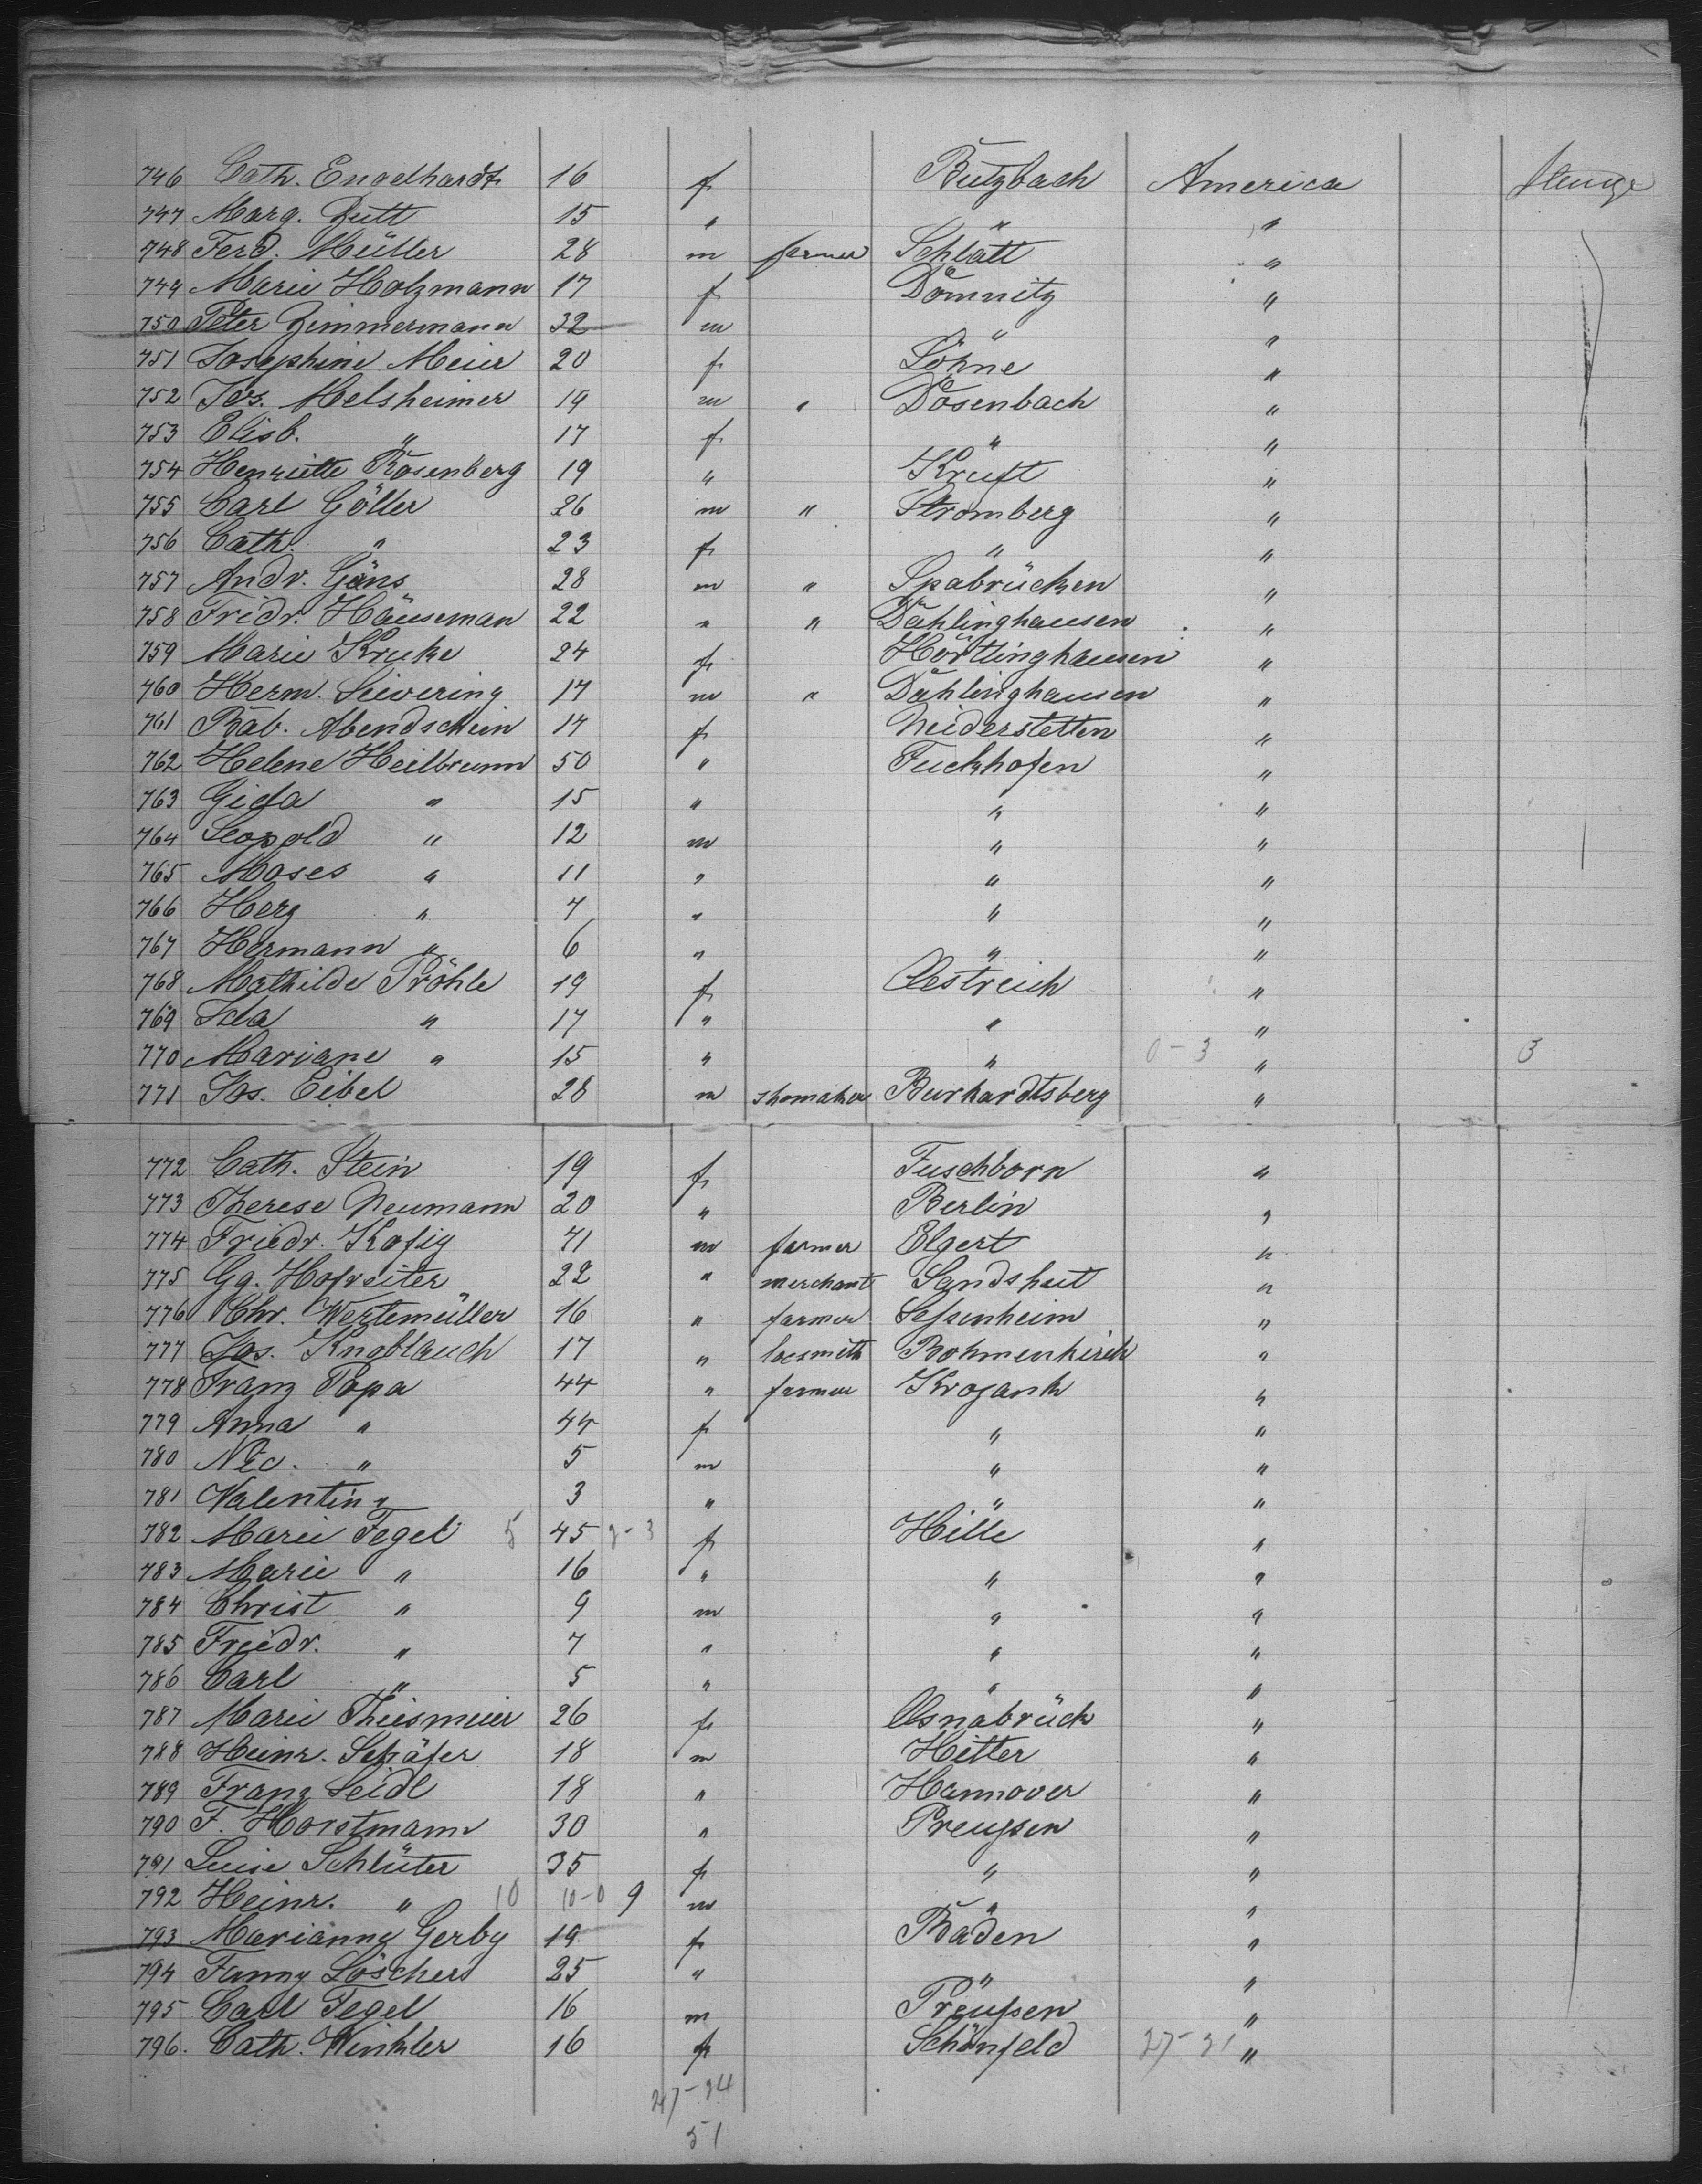 746 Cath. Engelhardt 16 f Butzbach America
747 Marg. Zutt 15 " " "
748 Ferd. Müller 28 m farmer Schlatt "
749 Marie Holzmann 17 f Dömnitz "
750 Peter Zimmermann 32 m " "
751 Josephine Meier 20 f Löhne "
752 Jos. Melsheimer 19 m " Dosenbach "
753 Elisb. " 17 f " "
754 Henriette Rosenberg 19 " Kruft "
755 Carl Göller 26 m " Stromberg "
756 Cath. " 23 f " "
757 Andr. Gäns 28 m " Spabrücken "
758 Fridr. Häuseman 22 " " Dahlinghausen "
759 Marie Kruke 24 f Hörtlinghausen "
760 Herm. Sievering 17 m " Dahlinghausen "
761 Bab. Abendschein 17 f Neiderstetten "
762 Helene Heilbrunn 50 " Fuckhofen "
763 " 15 " " "
764 Leopold " 12 m " "
765 Moses " 11 " " "
766 Herz " 7 " " "
767 Hermann " 6 " " "
768 Mathilde Pröhle 19 f Oestreich "
769 Ida " 17 " " "
770 Mariane " 15 " " 0-3 " 3
771 Jos. Eibel 28 m shomaker Burkardtsberg "
772 Cath. Stein 19 f Fuschborn "
773 Therese Neumann 20 " Berlin "
774 Friedr. Kofig 71 m farmer Elgert "
775 Gg. Hofreiter 22 " merchant Landshut "
776 Chr. Wertemüller 16 " farmer Sessenheim "
777 Jos. Knoblauch 17 " locsmith Bohmenkirch "
778 Franz Popa 44 " farmer Krojank "
779 Anna " 44 f " "
780 Nic. " 5 m " "
781 Valentin " 3 " " "
782 Marie Tegel 5 45 2-3 f Hille "
783 Marie " 16 " " "
784 Christ " 9 m " "
785 Friedr. " 7 " " "
786 Carl " 5 " " "
787 Marie Thiesmeier 26 f Osnabrück "
788 Heinr. Schäfer 18 m Hitter "
789 Franz Seidl 18 " Hannover "
790 F. Horstmann 30 " Preussen "
791 Luise Schlüter 35 f " "
792 Heinr. " 10 10-0 9 m " "
793 Marianny Gerby 19 f Baden "
794 Fanny Löscher 25 " " "
795 Carl Tegel 16 m Preussen "
796. Cath. Winkler 16 f Schönfeld 27-31 "
27-24
51